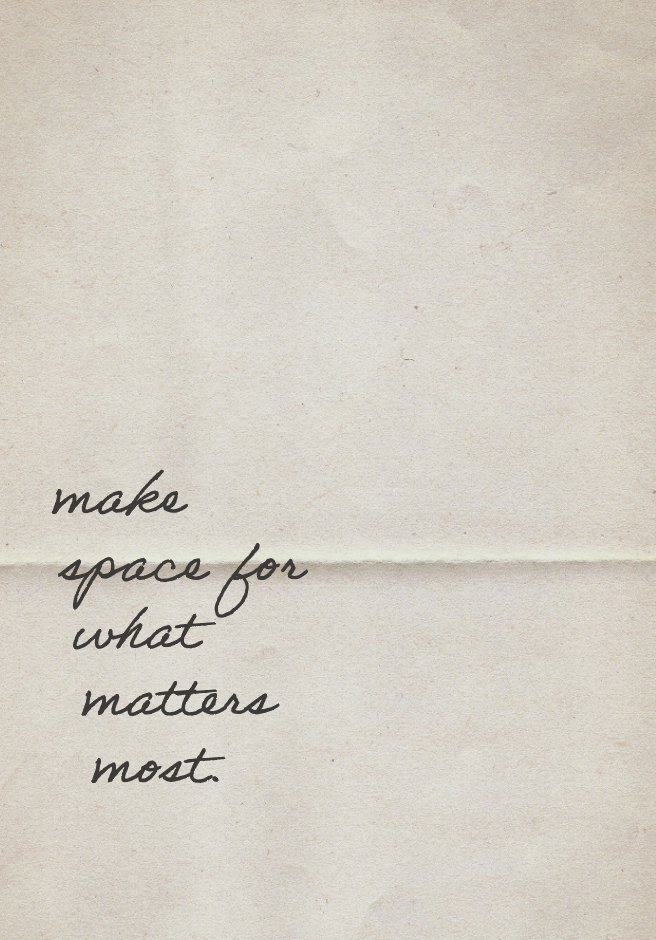 make
space for
what
matters
most.